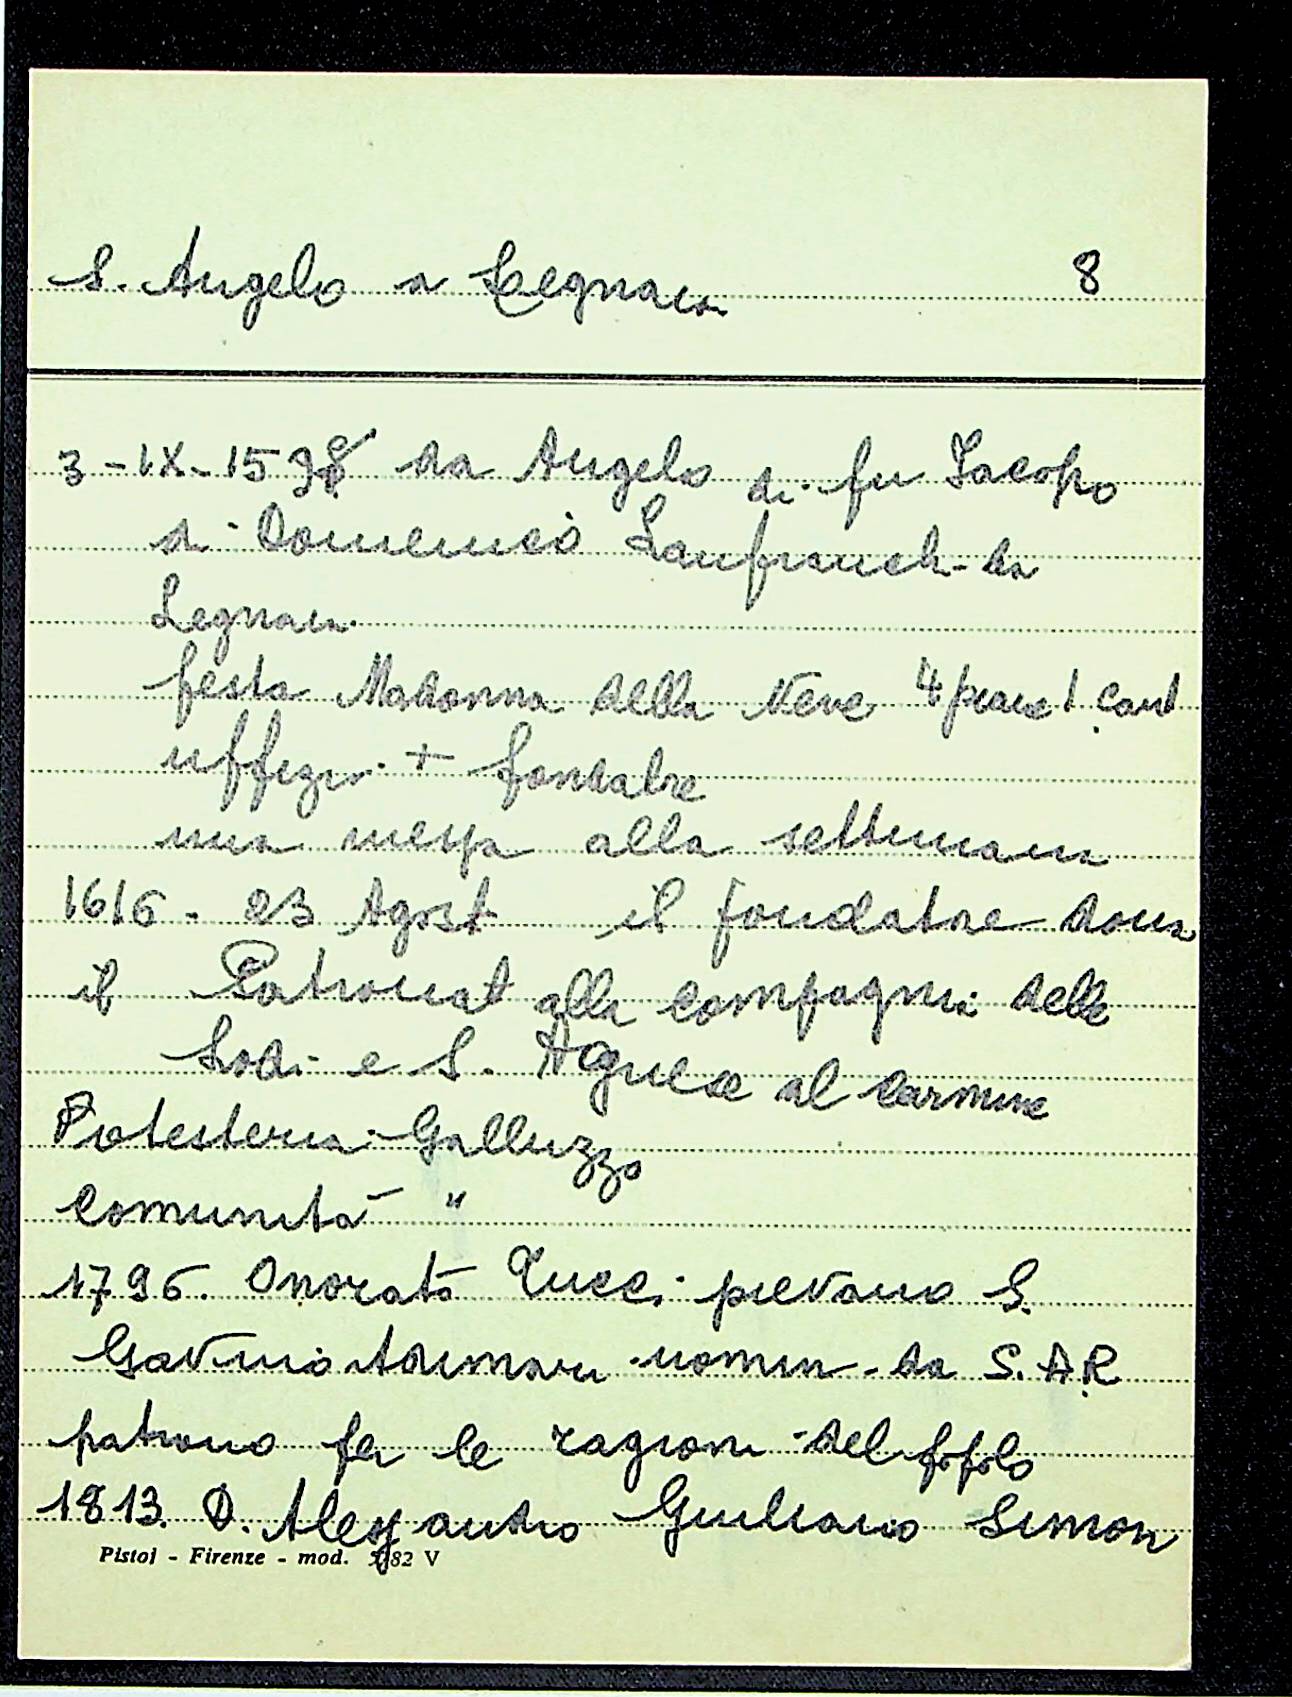 S. Angelo a Legnaia 8
3-IX-1598 da Angelo di fu Jacopo
di Domenico Lanfranchi da
Legnaia
festa Madonna della Neve 4 piane 1 cant
uffizio + fondatre
una messa alla settimana
1616 - 23 Agost il fondatore dona
il Patronat alla compagnia delle
Lodi e S. Agnese al Carmine
Potesteria Galluzzo
Comunità "
1796. Onorato Tucci pievano S.
Gavino Adimari nomin. da S.A.R
patrono per le ragioni del popolo
1813. D. Alessandro Giuliano Simon
Pistoi - Firenze - mod. 82 V